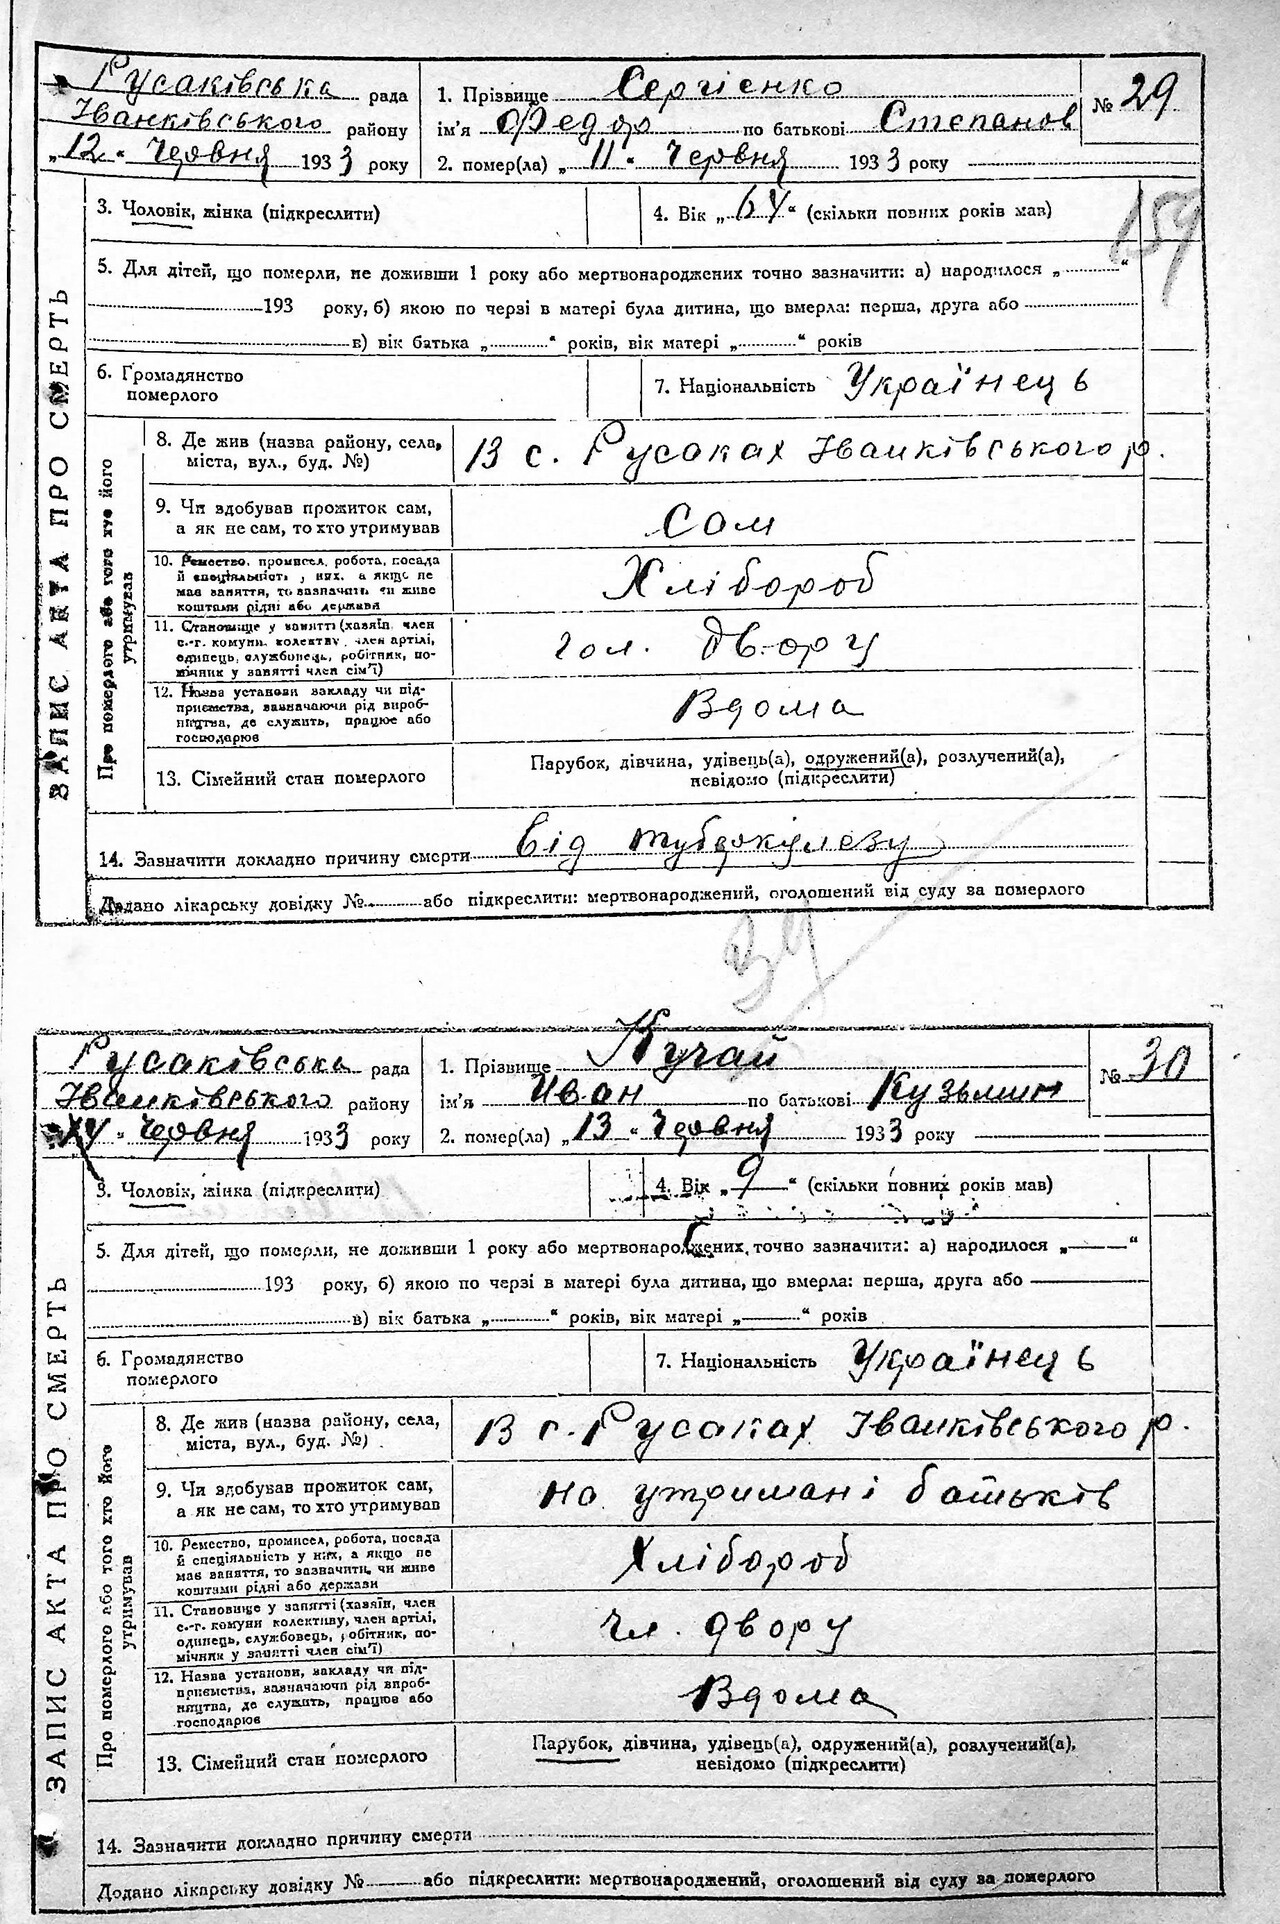 Русаківська рада
Іванківського району
„12“ Червня 1933 року
1. Прізвище Сергієнко
ім'я Федор по батькові Степанов
2. помер(ла) „11“ Червня 1933 року
№ 29
159
3. Чоловік, жінка (підкреслити)
4. Вік „64“ (скільки повних років мав)
5. Для дітей, що померли, не доживши 1 року або мертвонароджених точно зазначити: а) народилося „ “
193 року, б) якою по черзі в матері була дитина, що вмерла: перша, друга або
в) вік батька „ “ років, вік матері „ “ років
6. Громадянство
померлого
7. Національність Українець
ЗАПИС АКТА ПРО СМЕРТЬ
Про померлого або того хто його
утримував
8. Де жив (назва району, села,
міста, вул., буд. №)
В с. Русаках Іванківського р.
9. Чи здобував прожиток сам,
а як не сам, то хто утримував
Сам
10. Ремество, промисел, робота, посада
й спеціяльність у них, а якщо не
має заняття, то зазначить чи живе
коштами рідні або держави
Хлібороб
11. Становище у занятті (хазяїн, член
с.-г. комуни, колективу, член артілі,
одинець, службовець, робітник, по-
мічник у занятті член сім'ї)
гол. двору
12. Назва установи закладу чи під-
приємства, зазначаючи рід вироб-
ництва, де служить, працює або
господарює
Вдома
13. Сімейний стан померлого
Парубок, дівчина, удівець(а), одружений(а), розлучений(а),
невідомо (підкреслити)
14. Зазначити докладно причину смерти від туберкулезу
Додано лікарську довідку № або підкреслити: мертвонароджений, оголошений від суду за померлого
34
Русаківська рада
Іванківського району
14“ Червня 1933 року
1. Прізвище Кучай
ім'я Иван по батькові Кузьмин
2. помер(ла) „13“ Червня 1933 року
№ 30
3. Чоловік, жінка (підкреслити)
4. Вік „9“ (скільки повних років мав)
5. Для дітей, що померли, не доживши 1 року або мертвонароджених точно зазначити: а) народилося „ “
193 року, б) якою по черзі в матері була дитина, що вмерла: перша, друга або
в) вік батька „ “ років, вік матері „ “ років
6. Громадянство
померлого
7. Національність Українець
ЗАПИС АКТА ПРО СМЕРТЬ
Про померлого або того хто його
утримував
8. Де жив (назва району, села,
міста, вул., буд. №)
В с. Русаках Іванківського р.
9. Чи здобував прожиток сам,
а як не сам, то хто утримував
на утримані батьків
10. Ремество, промисел, робота, посада
й спеціяльність у них, а якщо не
має заняття, то зазначить, чи живе
коштами рідні або держави
Хлібороб
11. Становище у занятті (хазяїн, член
с.-г. комуни колективу, член артілі,
одинець, службовець, робітник, по-
мічник у занятті член сім'ї)
чл. двору
12. Назва установи, закладу чи під-
приємства, зазначаючи рід вироб-
ництва, де служить, працює або
господарює
Вдома
13. Сімейний стан померлого
Парубок, дівчина, удівець(а), одружений(а), розлучений(а),
невідомо (підкреслити)
14. Зазначити докладно причину смерти
Додано лікарську довідку № або підкреслити: мертвонароджений, оголошений від суду за померлого